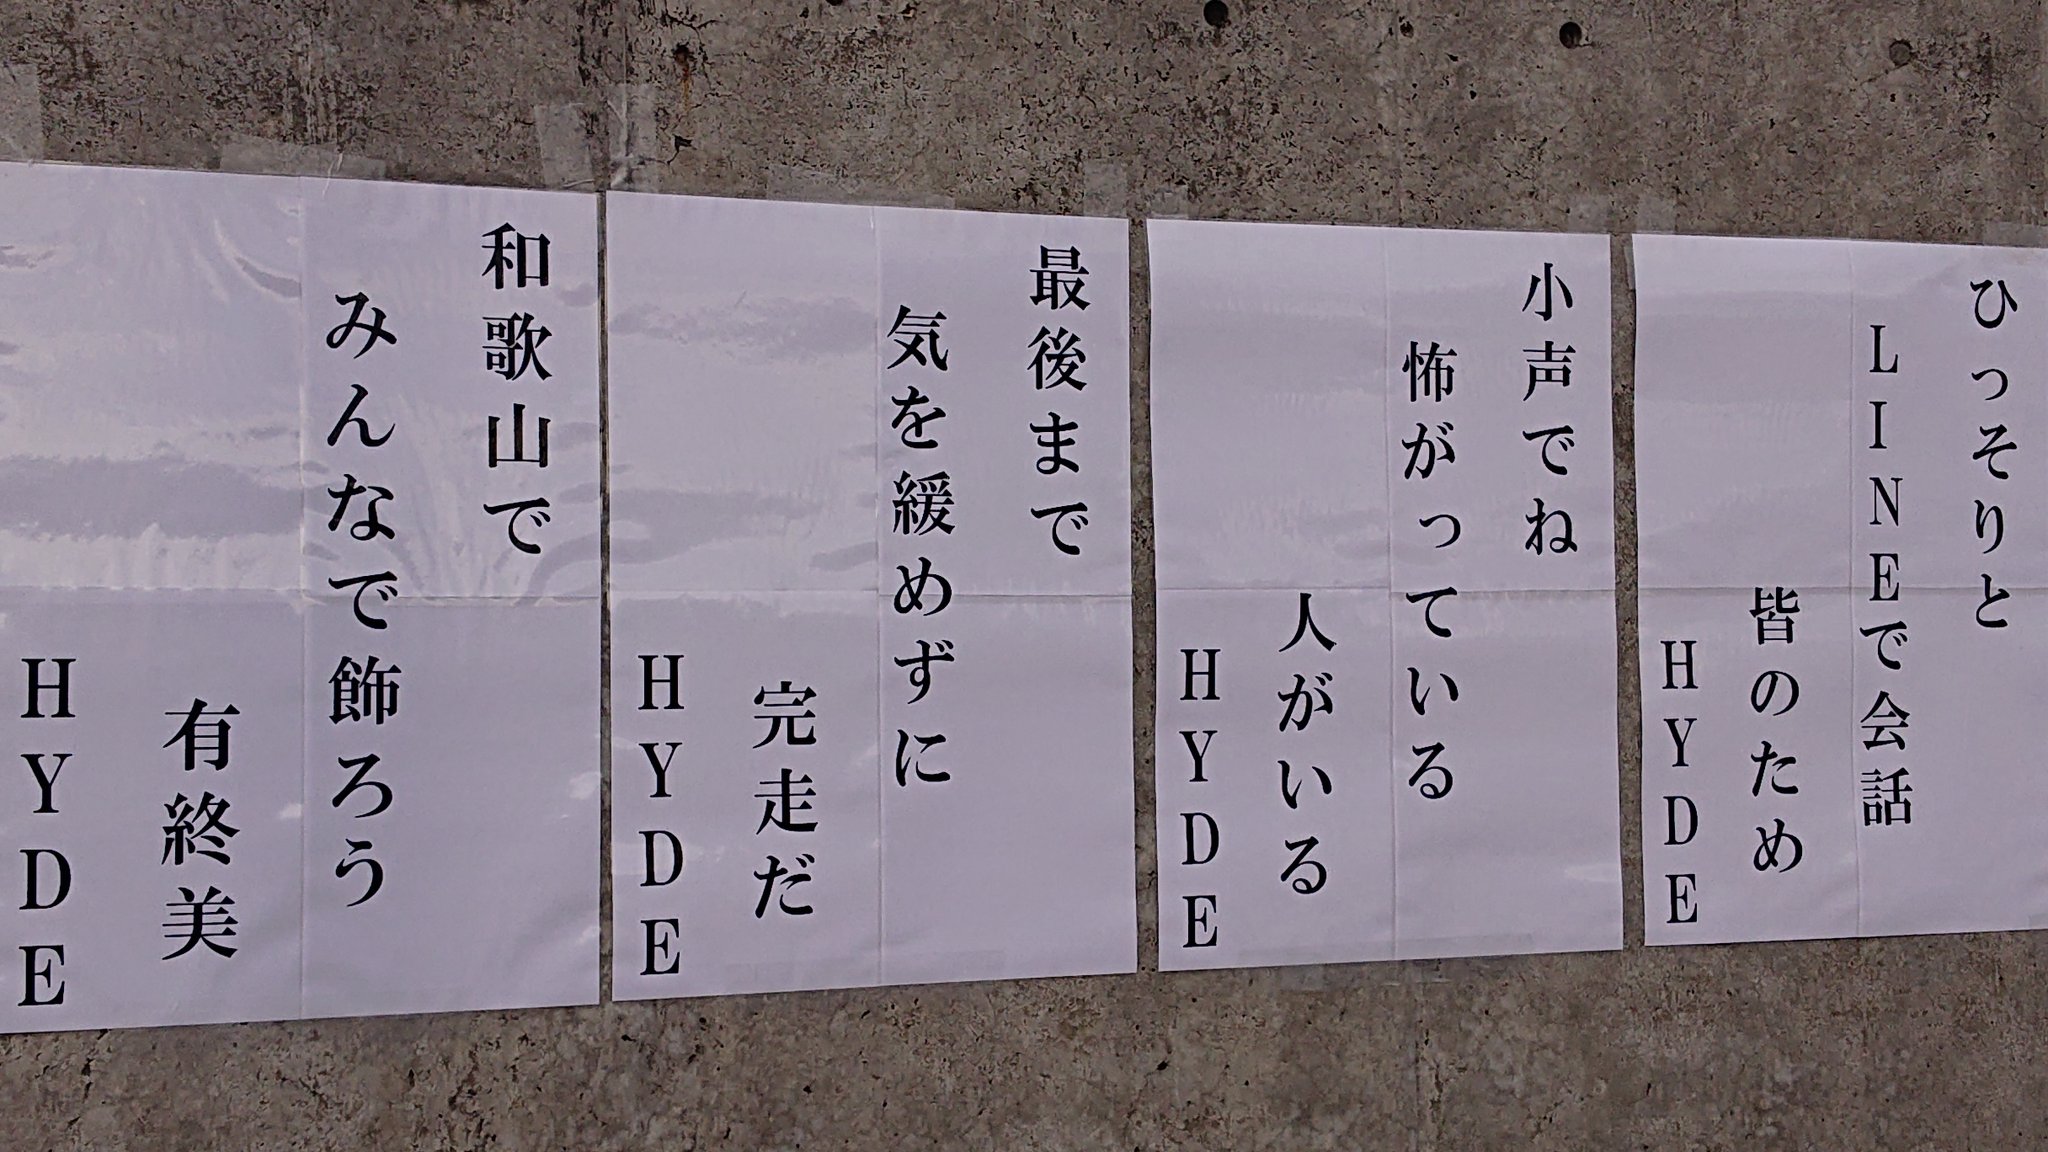 ひっそりと
LINEで会話
皆のため
HYDE
小声でね
怖がっている
人がいる
HYDE
最後まで
気を緩めずに
完走だ
HYDE
和歌山で
みんなで飾ろう
有終美
HYDE